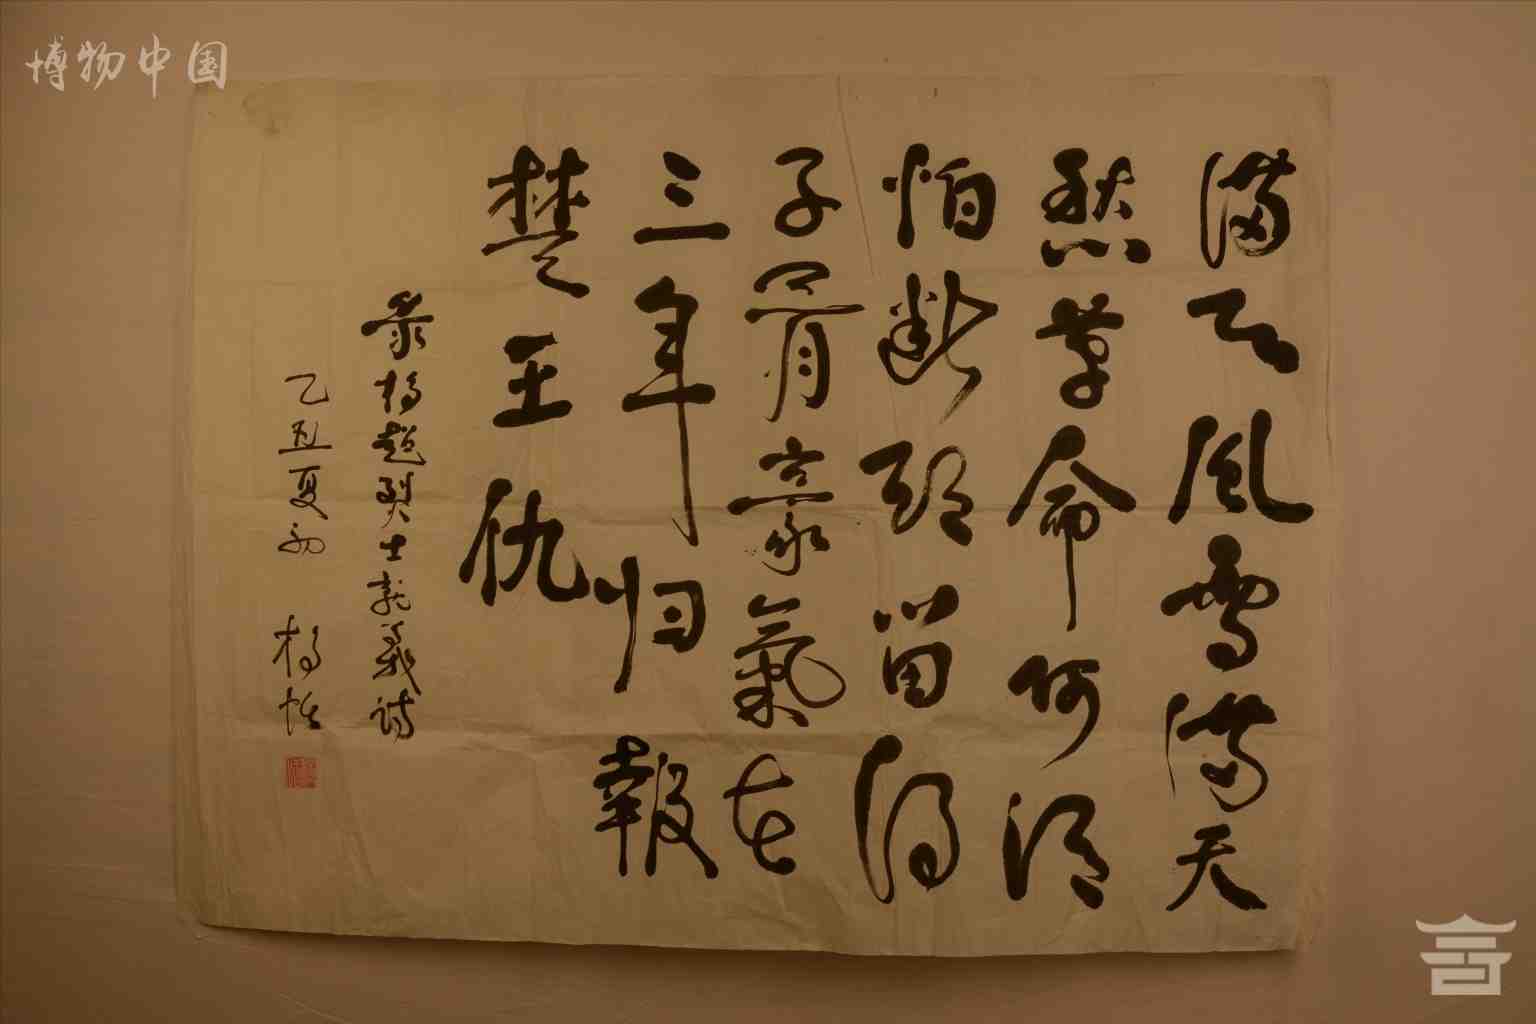 博物中国
满天风雪满天
愁革命何须
怕断頭留得
子胥豪氣在
三年归報
楚王仇
录杨超烈士就義诗
乙丑夏初 杨